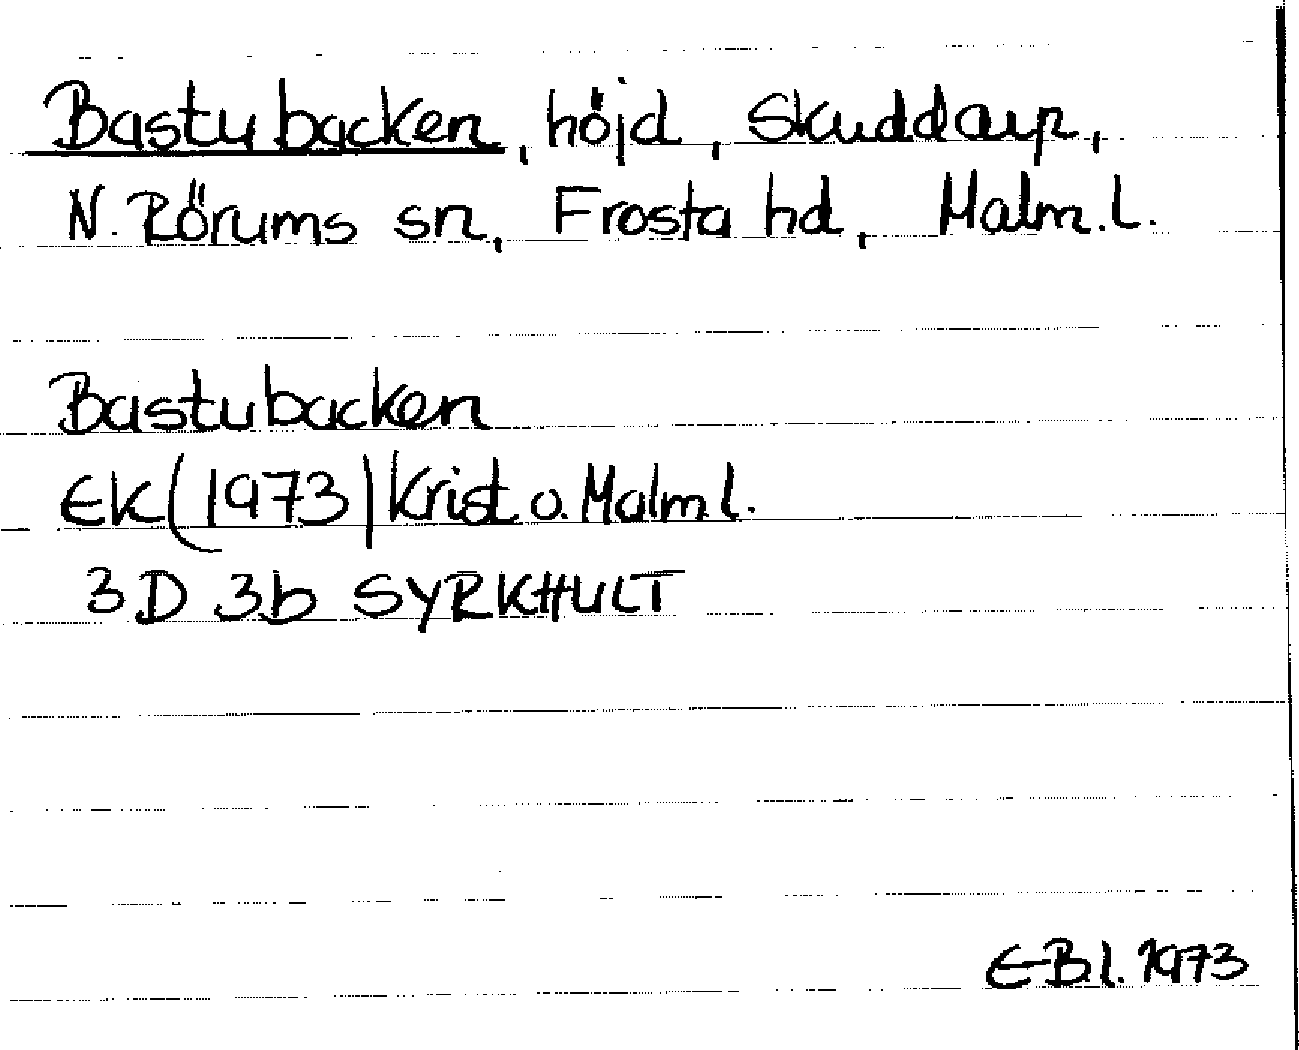 Bastubacken, höjd, Skuddarp,
N. Rörums sn, Frosta hd, Malm.l.
Bastubacken
EK (1973) Krist o. Malm l.
3D 3b SYRKHULT
E-B.l. 1973